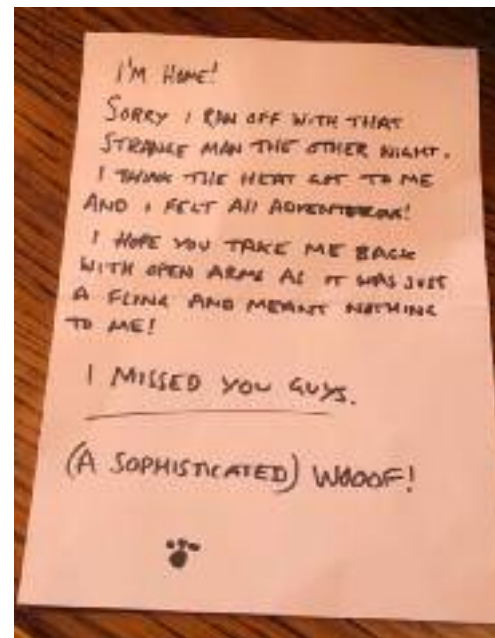 I'M HOME!
SORRY I RAN OFF WITH THAT
STRANGE MAN THE OTHER NIGHT.
I THINK THE HEAT GOT TO ME
AND I FELT All ADVENTEROUS!
I HOPE YOU TAKE ME BACK
WITH OPEN ARMS AS IT WAS JUST
A FLING AND MEANT NOTHING
TO ME!
I MISSED YOU GUYS.
(A SOPHISTICATED) WOOOF!